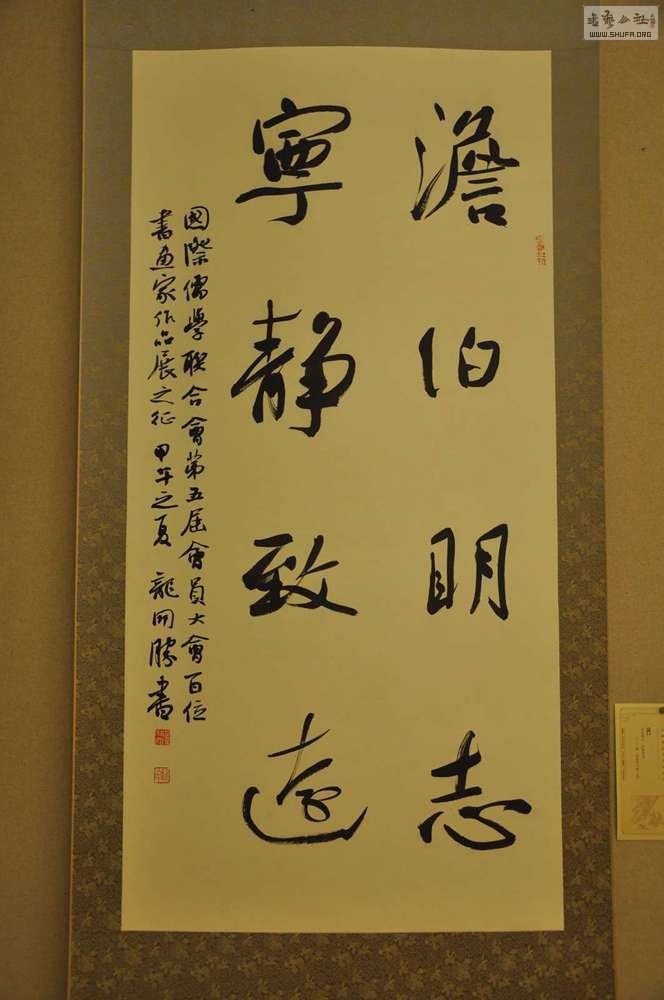 澹泊明志
寧靜致遠
國際儒學聯合會第五屆會員大會百位
書畫家作品展之征 甲午之夏 龍開勝書
書藝公社
WWW.SHUFA.ORG